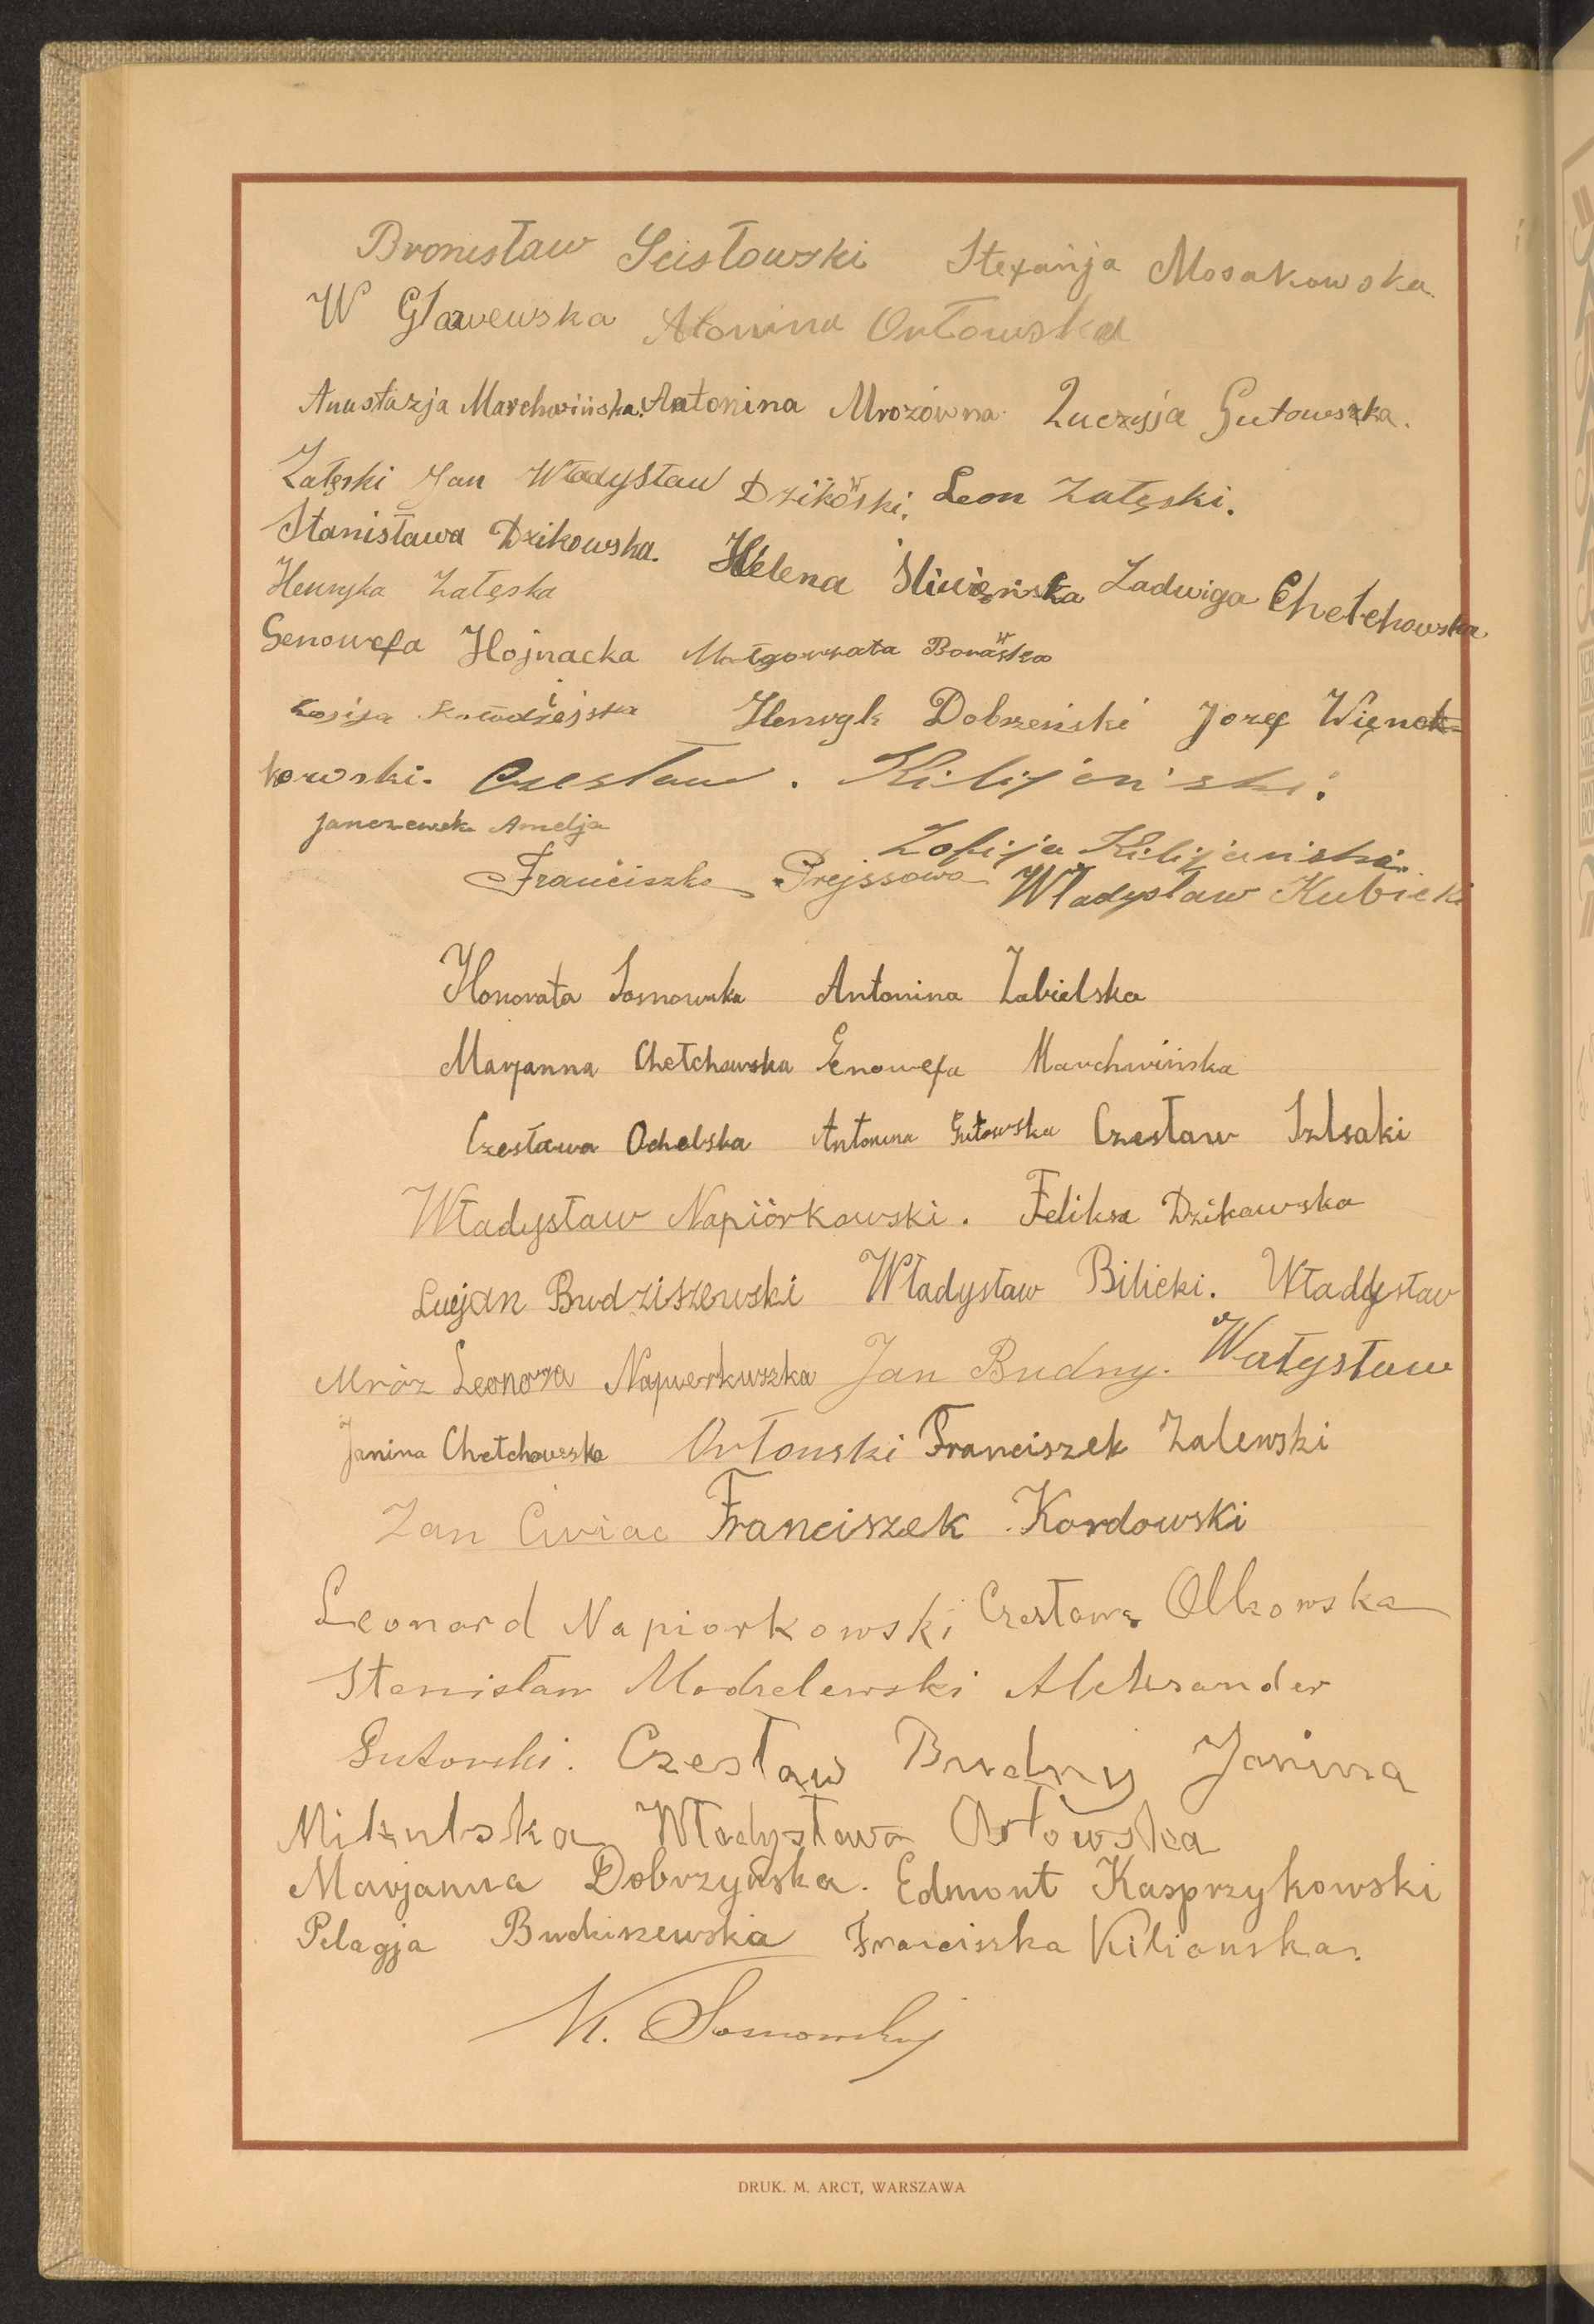 Bronisław Scisłowski Stefanja Mosakowska
W Glawewska Atonina Orłowska
Anastazja Marchwińska. Antonina Mrozówna Łuczyja Gutowszka.
Załęski Jan Władysław Dzikowski. Leon Załęski.
Stanisława Dzikowska. Helena Śliwińska Jadwiga Chełchowska
Henryka Załęska
Genowefa Hojnacka Małgorzata Borawska
Henryk Dobrzeński Jozef Więnck-
kowski. Czesław. Kilijański.
Janczewska Amelja
Zofija Kilijańska
Franciszka Prejssowa Władysław Kubicki
Honorata Sosnowska Antonina Zabielska
Marjanna Chełchowska Genowefa Marchwińska
Czesława Ochelska Antonina Gutowska Czesław
Władysław Napiórkowski. Feliksa Dzikowska
Lucjan Budziszewski Władysław Bilicki. Władysław
Mróz Leonora Jan Budny. Watysław
Janina Chełchowska Orłowski Franciszek Zalewski
Jan Ćwiac Franciszek Kordowski
Leonard Napiorkowski Czesława Olkowska
Stanisław Modzelewski Aleksander
Gutowski. Czesław Budny Janina
Mikulska Władysława Orłowska
Marjanna Dobrzyńska. Edmont Kasprzykowski
Pelagja Budziszewska Franciszka Kilianska.
K. Sosnowskij
DRUK. M. ARCT, WARSZAWA